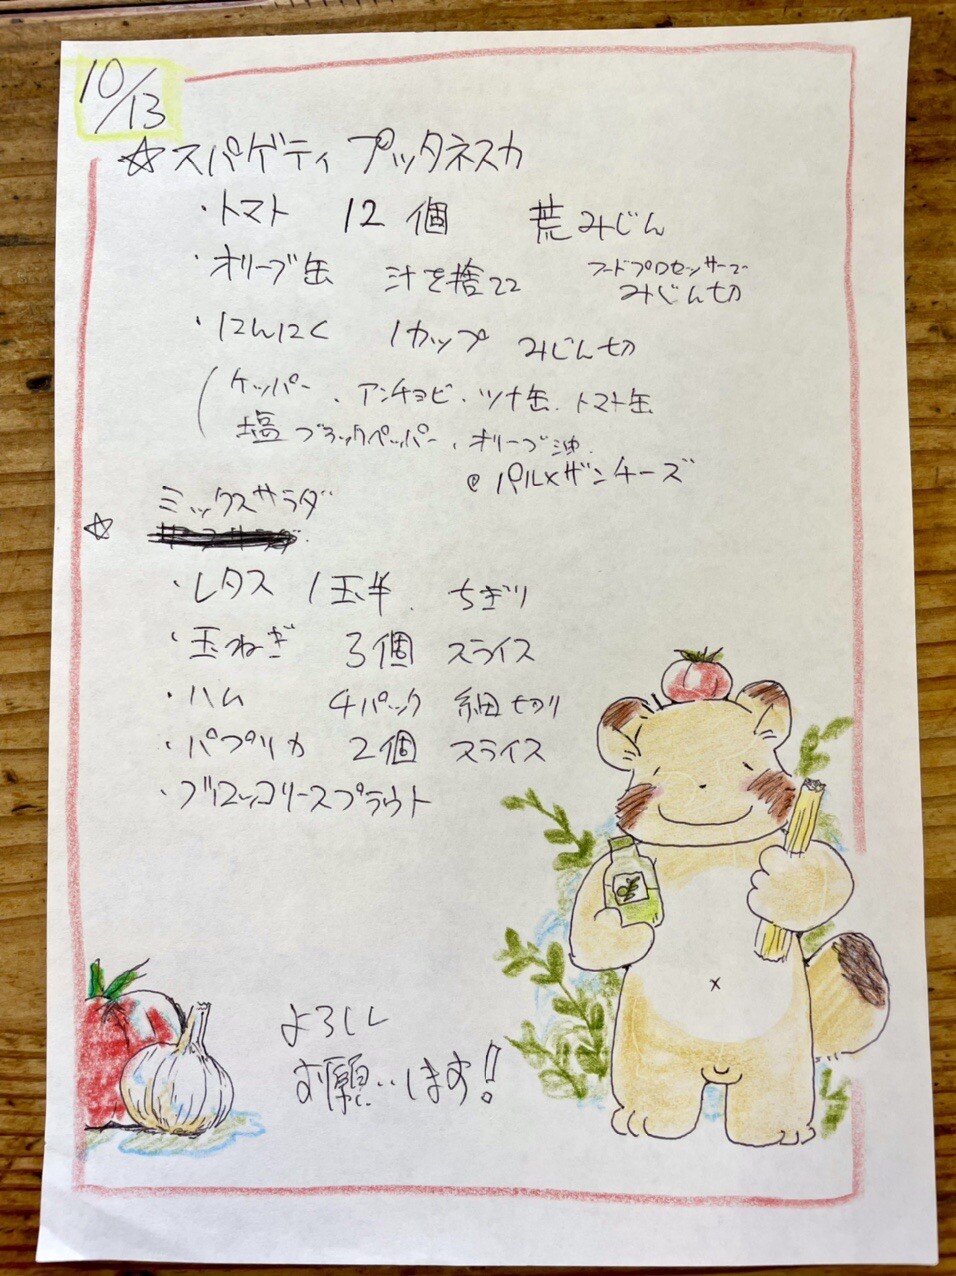 10/13
☆スパゲティ プッタネスカ
・トマト 12個 荒みじん
・オリーブ缶 汁を捨てて フードプロセッサーで みじん切
・にんにく 1カップ みじん切
(ケッパー、アンチョビ、ツナ缶、トマト缶
塩 ブラックペッパー、オリーブ油、
@パルメザンチーズ
☆ ミックスサラダ
・レタス 1玉半 ちぎり
・玉ねぎ 3個 スライス
・ハム 4パック 細切り
・パプリカ 2個 スライス
・ブロッコリースプラウト
よろしく
お願いします!!